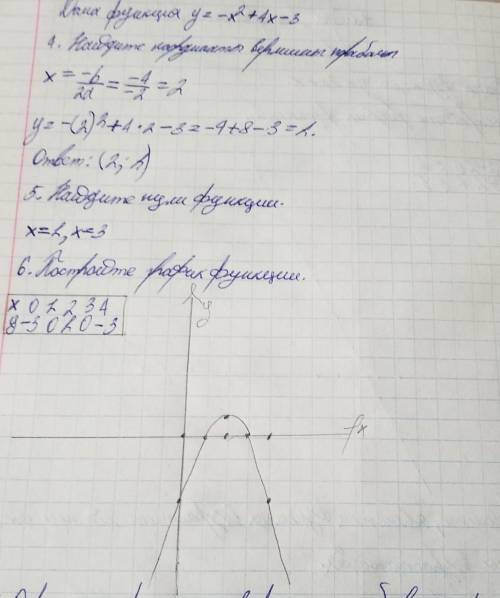 Дана функция y = -x² + 4x - 3
4. Найдите координаты вершины параболы
x = -b/2a = -4/-2 = 2
y = -(2)² + 4 · 2 - 3 = -4 + 8 - 3 = 1.
Ответ: (2; 1)
5. Найдите нули функции.
x = 1, x = 3
6. Постройте график функции.
x 0 1 2 3 4
y -3 0 1 0 -3
y
x